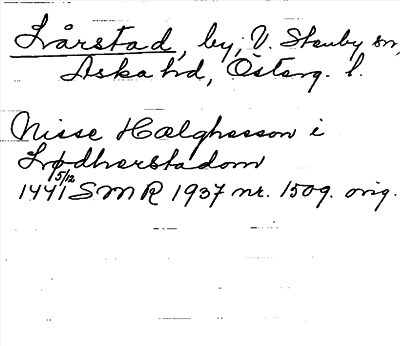 Lårstad, by, V. Stenby sn,
Aska hd, Österg. l.
Nisse Hælghesson i
Lødherstadom
1441 5/12 SMR 1937 nr. 1509. orig.